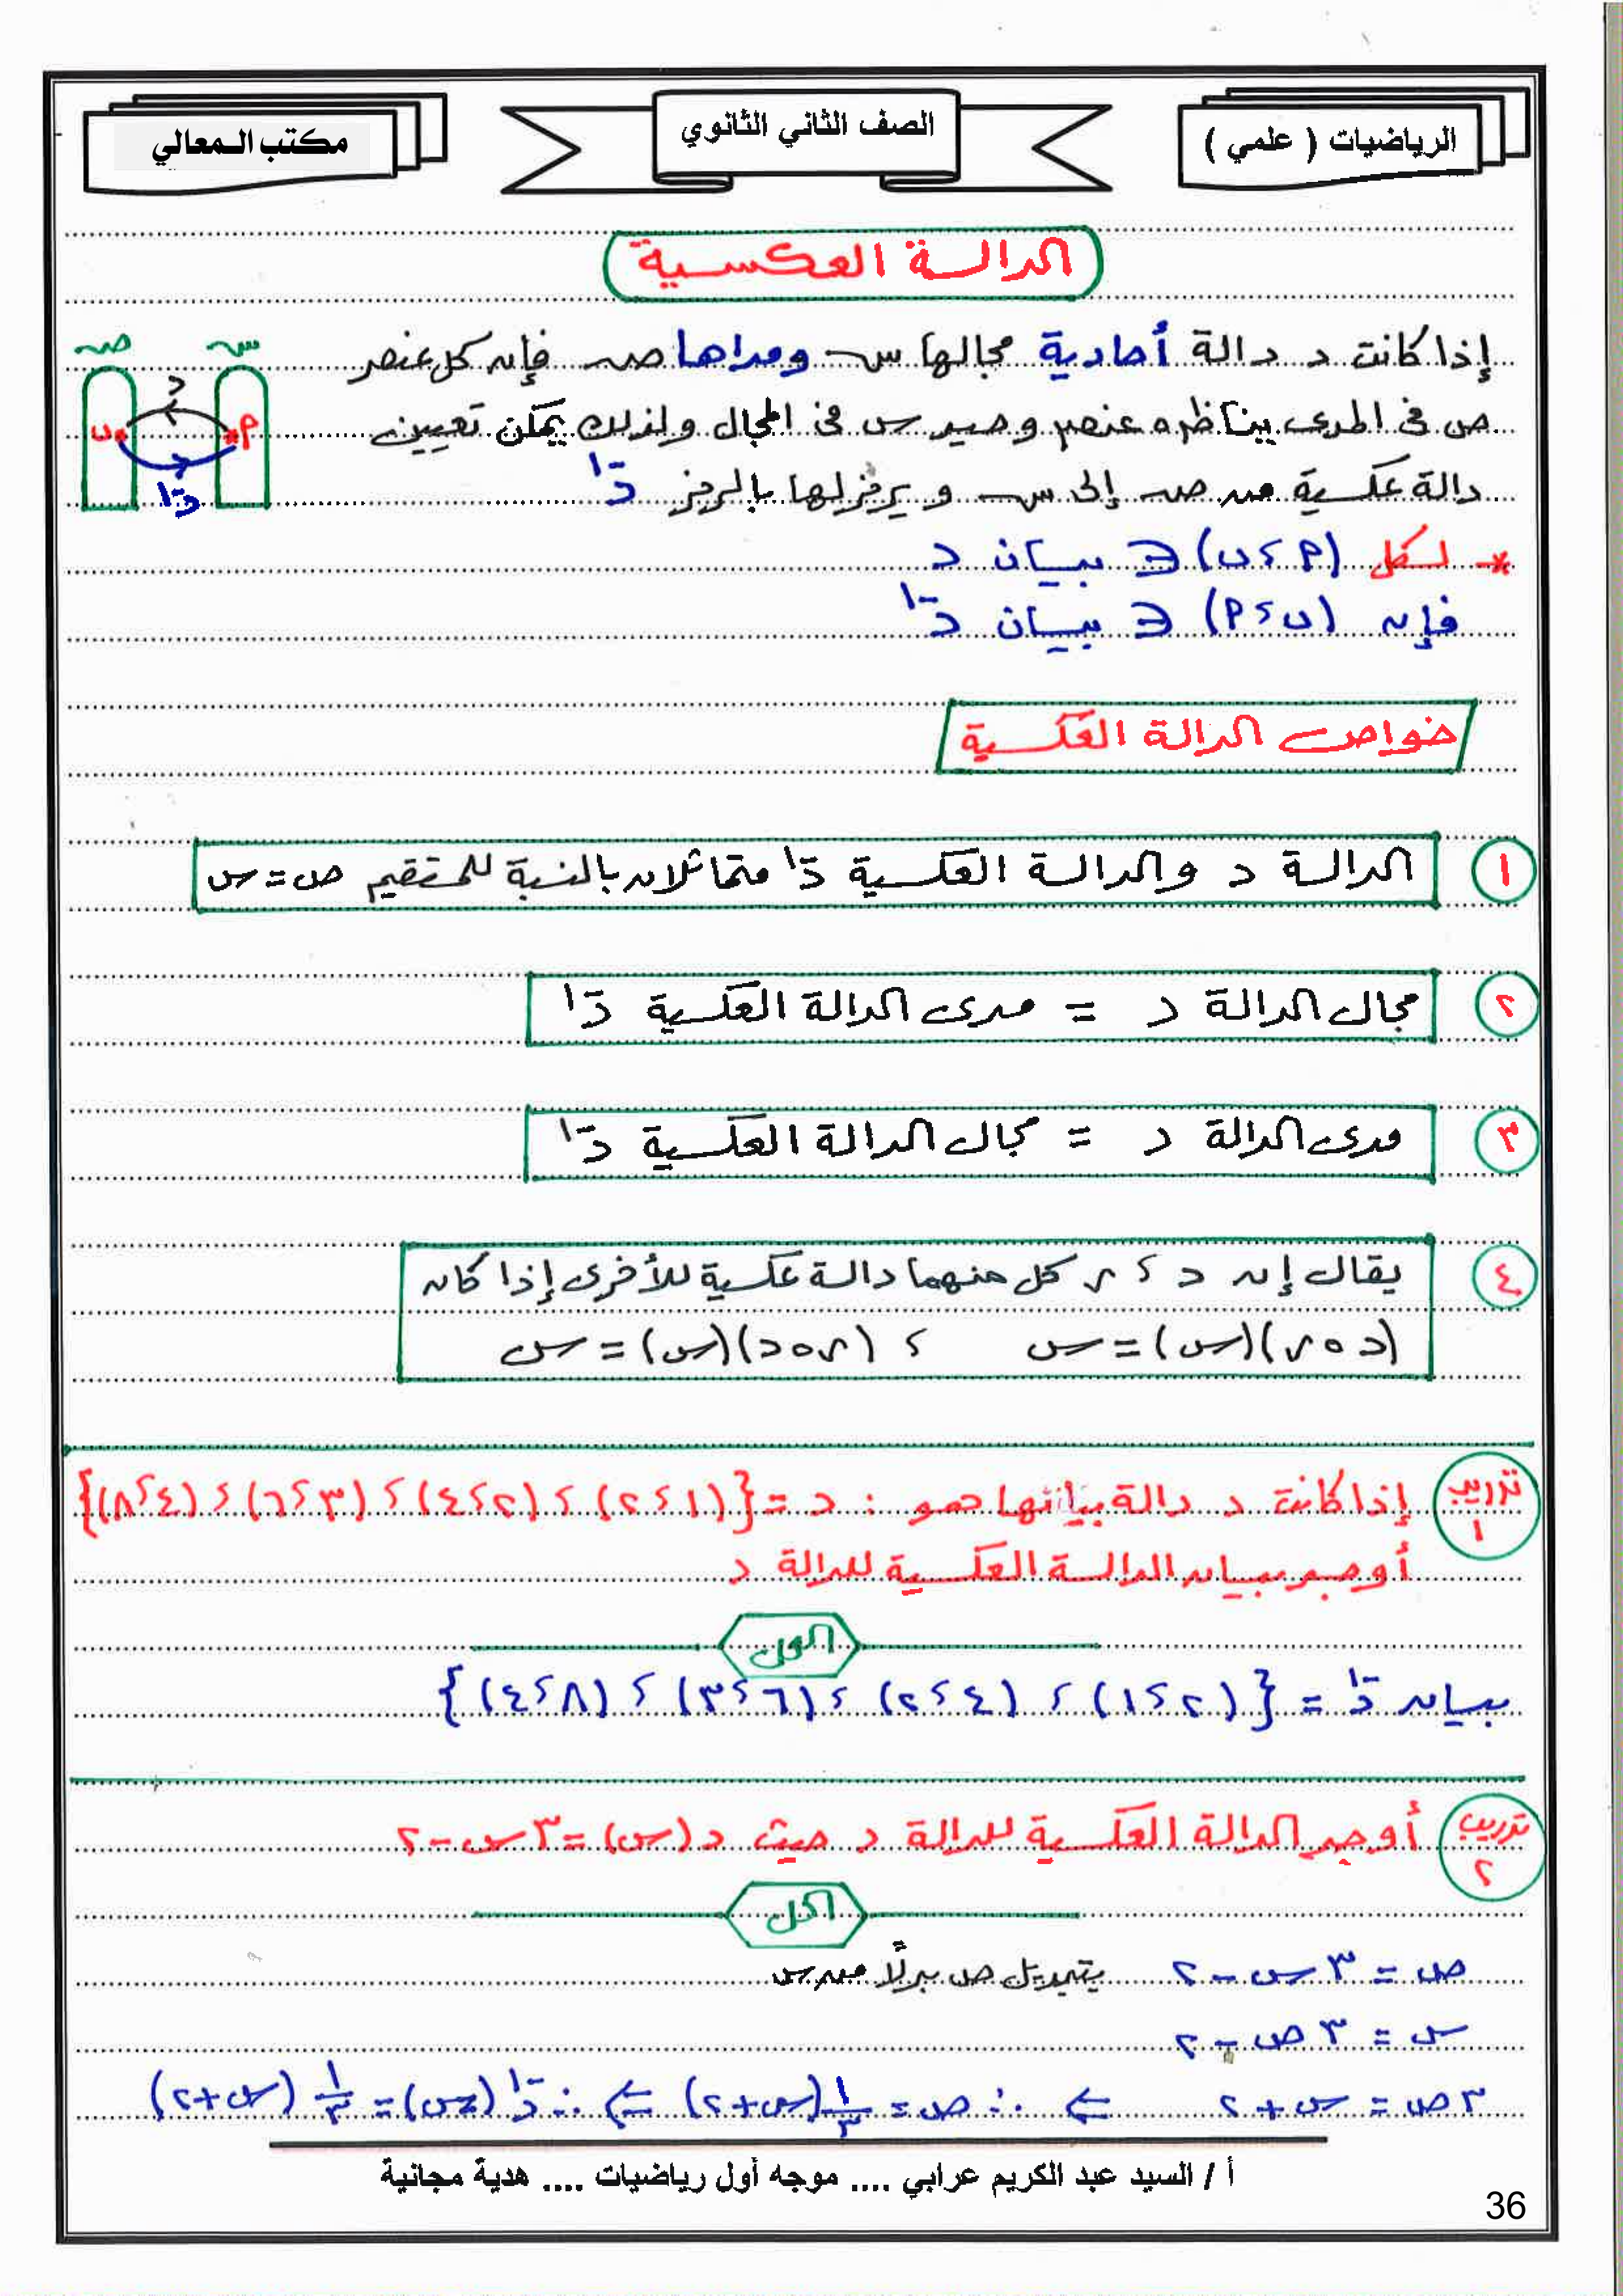 الرياضيات ( علمي )
الصف الثاني الثانوي
مكتب المعالي
الدالة العكسية
إذا كانت د دالة أحادية مجالها سـ ومداها صـ فإن كل عنصر
ص في المدى يناظره عنصر وحيد س في المجال ولذلك يمكن تعيين
دالة عكسية من صـ إلى سـ ويرمز لها بالرمز د⁻¹
سـ صـ
د
P ب
د⁻¹
* لكل (P ، ب) ∈ بيان د
فإن (ب ، P) ∈ بيان د⁻¹
خواص الدالة العكسية
١ الدالة د والدالة العكسية د⁻¹ متماثلان بالنسبة للمستقيم ص = س
٢ مجال الدالة د = مدى الدالة العكسية د⁻¹
٣ مدى الدالة د = مجال الدالة العكسية د⁻¹
٤ يقال إن د ، ر كل منهما دالة عكسية للأخرى إذا كان
(د ∘ ر)(س) = س ، (ر ∘ د)(س) = س
تدريب ١ إذا كانت د دالة بيانها هو : د = {(١،٢) ، (٢،٤) ، (٣،٦) ، (٤،٨)}
أوجد بيان الدالة العكسية للدالة د
الحل
بيان د⁻¹ = {(٢،١) ، (٤،٢) ، (٦،٣) ، (٨،٤)}
تدريب ٢ أوجد الدالة العكسية للدالة د حيث د(س) = ٣س - ٢
الحل
ص = ٣س - ٢ بتبديل ص بدلاً من س
س = ٣ص - ٢
٣ص = س + ٢ ⇐ ∴ ص = ١/٣ (س + ٢) ⇐ ∴ د⁻¹(س) = ١/٣ (س + ٢)
أ / السيد عبد الكريم عرابي .... موجه أول رياضيات .... هدية مجانية
36